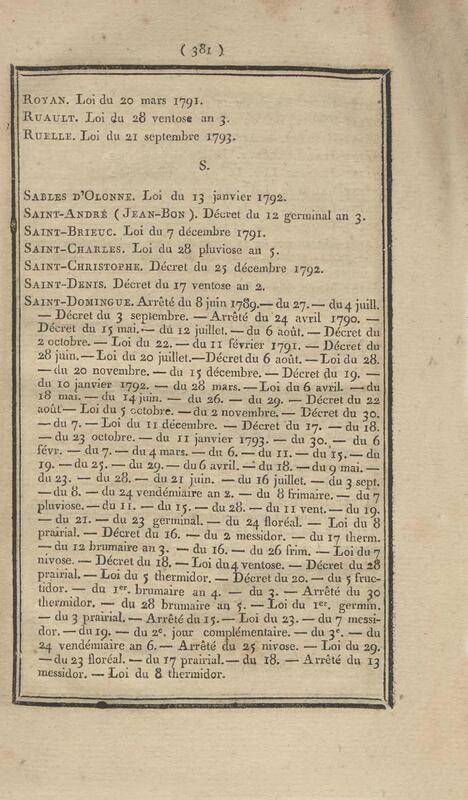 ( 381 )
ROYAN. Loi du 20 mars 1791.
RUAULT. Loi du 28 ventose an 3.
RUELLE. Loi du 21 septembre 1793.
S.
SABLES D'OLONNE. Loi du 13 janvier 1792.
SAINT-ANDRÉ ( JEAN-BON ). Décret du 12 germinal an 3.
SAINT-BRIEUC. Loi du 7 décembre 1791.
SAINT-CHARLES. Loi du 28 pluviose an 5.
SAINT-CHRISTOPHE. Décret du 25 décembre 1792.
SAINT-DENIS. Décret du 17 ventose an 2.
SAINT-DOMINGUE. Arrêté du 8 juin 1789. — du 27. — du 4 juill.
— Décret du 3 septembre. — Arrêté du 24 avril 1790. —
Décret du 15 mai. — du 12 juillet. — du 6 août. — Décret du
2 octobre. — Loi du 22. — du 11 février 1791. — Décret du
28 juin. — Loi du 20 juillet. — Décret du 6 août. — Loi du 28.
— du 20 novembre. — du 15 décembre. — Décret du 19. —
du 10 janvier 1792. — du 28 mars. — Loi du 6 avril. — du
18 mai. — du 14 juin. — du 26. — du 29. — Décret du 22
août — Loi du 5 octobre. — du 2 novembre. — Décret du 30.
— du 7. — Loi du 11 décembre. — Décret du 17. — du 18.
— du 23 octobre. — du 11 janvier 1793. — du 30. — du 6
févr. — du 7. — du 4 mars. — du 6. — du 11. — du 15. — du
19. — du 25. — du 29. — du 6 avril. — du 18. — du 9 mai. —
du 23. — du 28. — du 21 juin. — du 16 juillet. — du 3 sept.
— du 8. — du 24 vendémiaire an 2. — du 8 frimaire. — du 7
pluviose. — du 11. — du 15. — du 28. — du 11 vent. — du 19.
— du 21. — du 23 germinal. — du 24 floréal. — Loi du 8
prairial. — Décret du 16. — du 2 messidor. — du 17 therm.
— du 12 brumaire an 3. — du 16. — du 26 frim. — Loi du 7
nivose. — Décret du 18. — Loi du 4 ventose. — Décret du 28
prairial. — Loi du 5 thermidor. — Décret du 20. — du 5 fruc-
tidor. — du 1er. brumaire an 4. — du 3. — Arrêté du 30
thermidor. — du 28 brumaire an 5. — Loi du 1er. germin.
— du 3 prairial. — Arrêté du 15. — Loi du 23. — du 7 messi-
dor. — du 19. — du 2e. jour complémentaire. — du 3e. — du
24 vendémiaire an 6. — Arrêté du 25 nivose. — Loi du 29.
— du 23 floréal. — du 17 prairial. — du 18. — Arrêté du 13
messidor. — Loi du 8 thermidor.